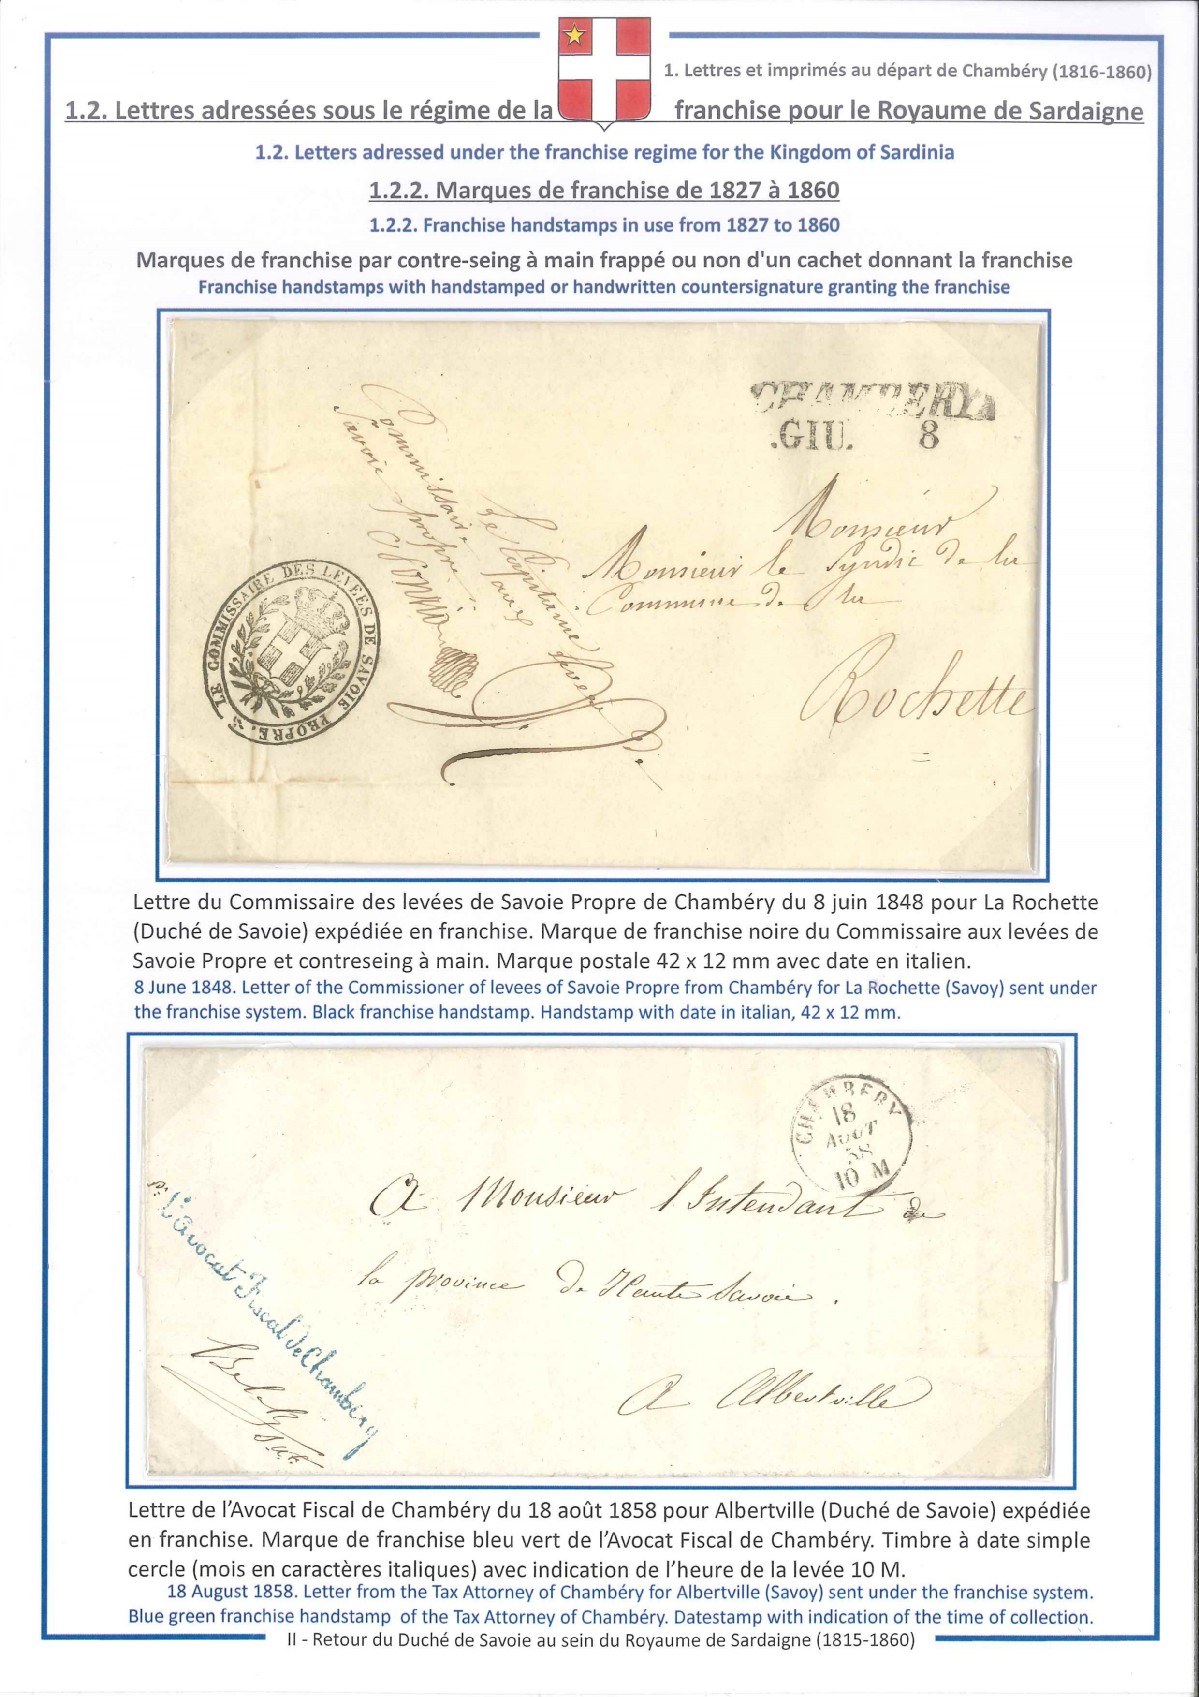 1. Lettres et imprimés au départ de Chambéry (1816-1860)
1.2. Lettres adressées sous le régime de la franchise pour le Royaume de Sardaigne
1.2. Letters adressed under the franchise regime for the Kingdom of Sardinia
1.2.2. Marques de franchise de 1827 à 1860
1.2.2. Franchise handstamps in use from 1827 to 1860
Marques de franchise par contre-seing à main frappé ou non d'un cachet donnant la franchise
Franchise handstamps with handstamped or handwritten countersignature granting the franchise
CHAMBERY
.GIU. 8
Monsieur
Monsieur le Syndic de la
Commune de la
Rochette
Commissaire
Savoie propre
Le Capitaine
LE COMMISSAIRE DES LEVÉES DE SAVOIE PROPRE.
Lettre du Commissaire des levées de Savoie Propre de Chambéry du 8 juin 1848 pour La Rochette
(Duché de Savoie) expédiée en franchise. Marque de franchise noire du Commissaire aux levées de
Savoie Propre et contreseing à main. Marque postale 42 x 12 mm avec date en italien.
8 June 1848. Letter of the Commissioner of levees of Savoie Propre from Chambéry for La Rochette (Savoy) sent under
the franchise system. Black franchise handstamp. Handstamp with date in italian, 42 x 12 mm.
CHAMBERY
18
AOUT
58
10 M
A Monsieur l'Intendant de
la province de Haute Savoie.
A Albertville
l'Avocat Fiscal de Chambéry
Lettre de l'Avocat Fiscal de Chambéry du 18 août 1858 pour Albertville (Duché de Savoie) expédiée
en franchise. Marque de franchise bleu vert de l'Avocat Fiscal de Chambéry. Timbre à date simple
cercle (mois en caractères italiques) avec indication de l'heure de la levée 10 M.
18 August 1858. Letter from the Tax Attorney of Chambéry for Albertville (Savoy) sent under the franchise system.
Blue green franchise handstamp of the Tax Attorney of Chambéry. Datestamp with indication of the time of collection.
II - Retour du Duché de Savoie au sein du Royaume de Sardaigne (1815-1860)